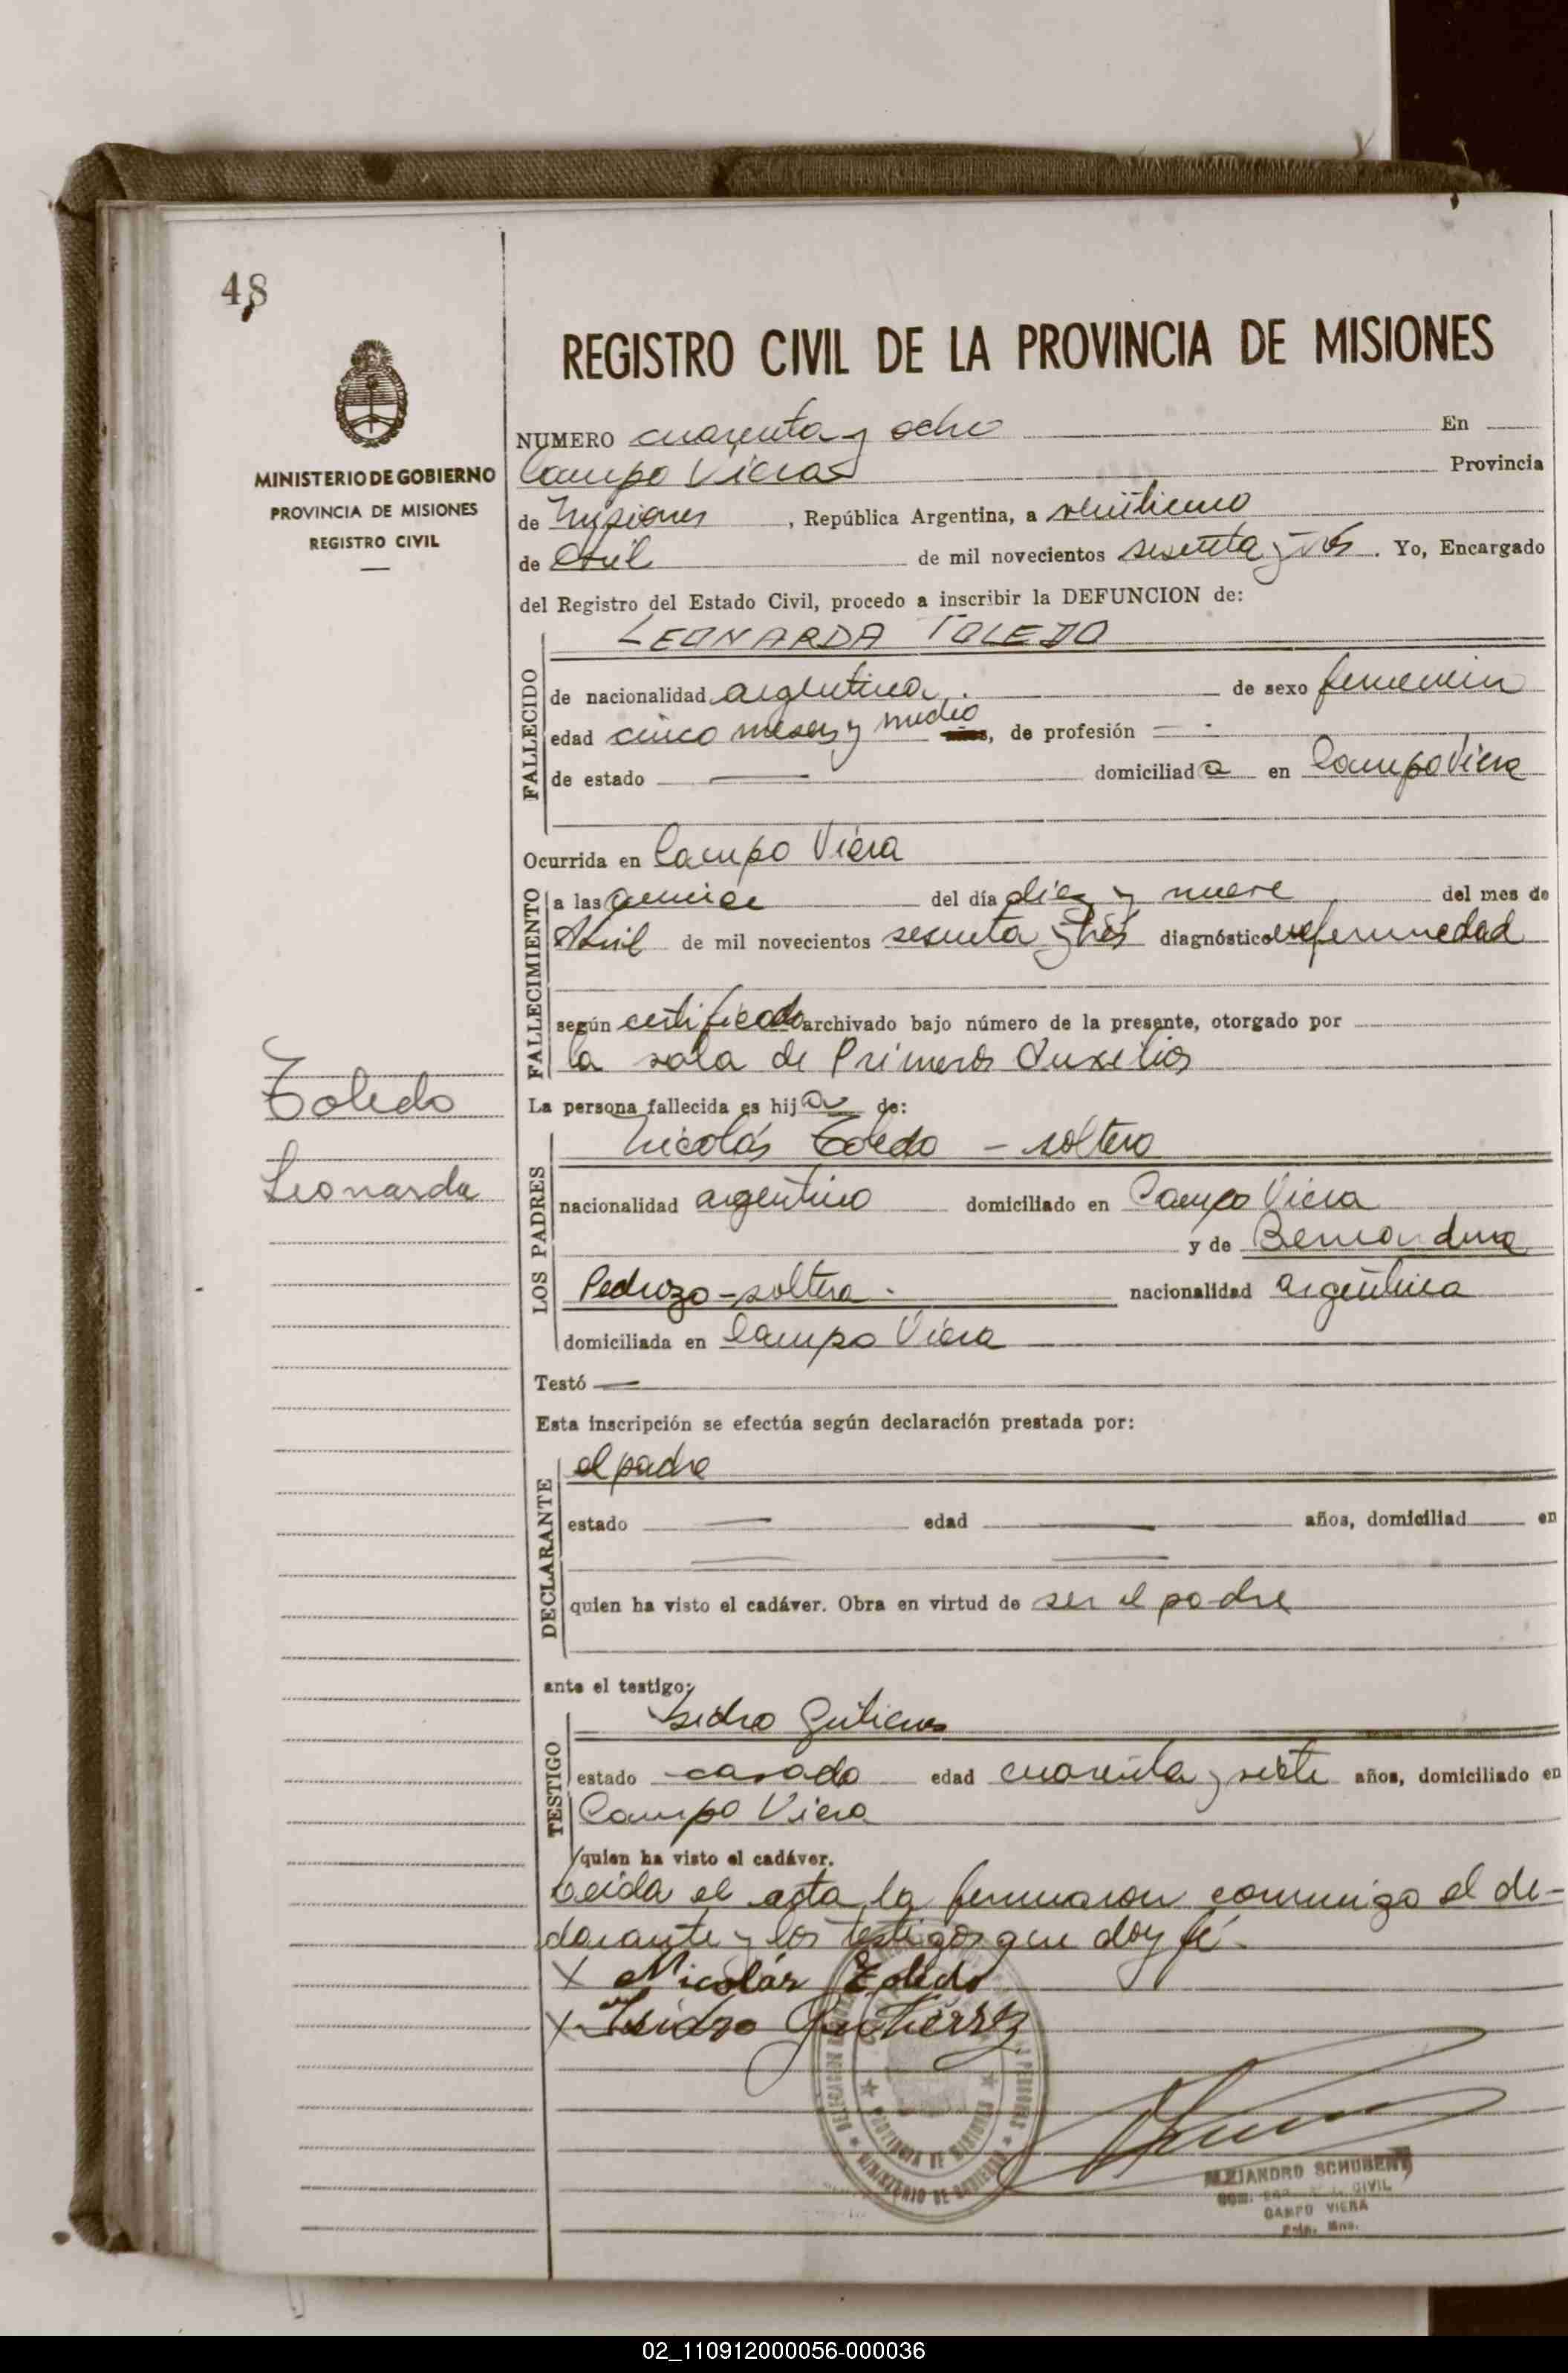 48
MINISTERIO DE GOBIERNO
PROVINCIA DE MISIONES
REGISTRO CIVIL
Toledo
Leonarda
REGISTRO CIVIL DE LA PROVINCIA DE MISIONES
NUMERO cuarenta y ocho En
Campo Viera Provincia
de Misiones , República Argentina, a
de Abril de mil novecientos sesenta y tres . Yo, Encargado
del Registro del Estado Civil, procedo a inscribir la DEFUNCION de:
LEONARDA TOLEDO
FALLECIDO
de nacionalidad argentina . de sexo femenin
edad cinco meses y medio años, de profesión
de estado — domiciliada en Campo Viera
Ocurrida en Campo Viera
FALLECIMIENTO
a las quince del día diez y nueve del mes de
Abril de mil novecientos sesenta y tres diagnóstico enfermedad
según certificado archivado bajo número de la presente, otorgado por
la sala de Primeros Auxilios
La persona fallecida es hija de:
LOS PADRES
Nicolás Toledo — soltero
nacionalidad argentino domiciliado en Campo Viera
y de Bernardina
Pedrozo - soltera . nacionalidad argentina
domiciliada en Campo Viera
Testó —
Esta inscripción se efectúa según declaración prestada por:
DECLARANTE
el padre
estado — edad — años, domiciliad en
quien ha visto el cadáver. Obra en virtud de ser el padre
ante el testigo:
TESTIGO
Isidro Gutierres
estado casado edad cuarenta y siete años, domiciliado en
Campo Viera
quien ha visto el cadáver.
Leida el acta la firmaron conmigo el de-
clarante y los testigos que doy fé.
X Nicolás Toledo
X Isidro Gutierrez
PROVINCIA DE MISIONES
MINISTERIO DE GOBIERNO
ALEJANDRO SCHUBERT
CIVIL
CAMPO VIERA
Mns.
02_110912000056-000036